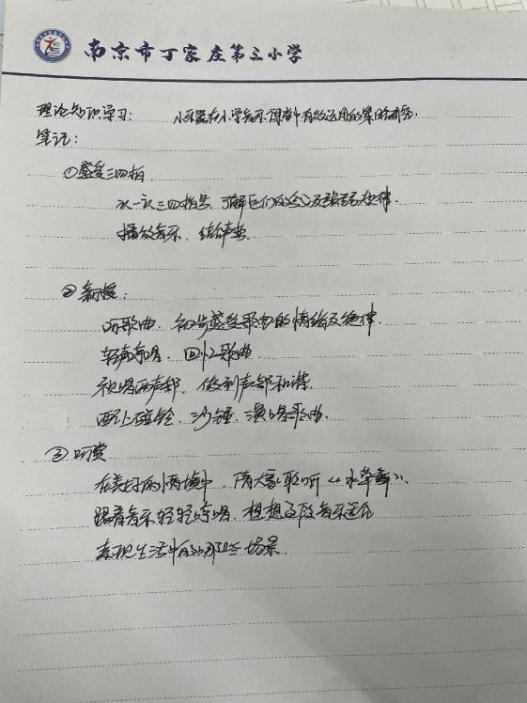 南京市丁家庄第三小学
理论知识学习: 小乐器在小学音乐课堂中有效运用的策略研究.
笔记:
①感受三四拍
认一认三四拍号,了解它们的含义及强弱规律.
播放音乐,结合声势
②新授:
听歌曲.初步感受歌曲的情绪及旋律.
轻声哼唱,回忆歌曲
视唱两声部,做到声部和谐.
配上碰铃、沙锤,演唱歌曲.
③听赏
在美好的情境中,请大家聆听《水草舞》.
跟着音乐轻轻哼唱,想想这段音乐适合
表现生活中的哪些场景.